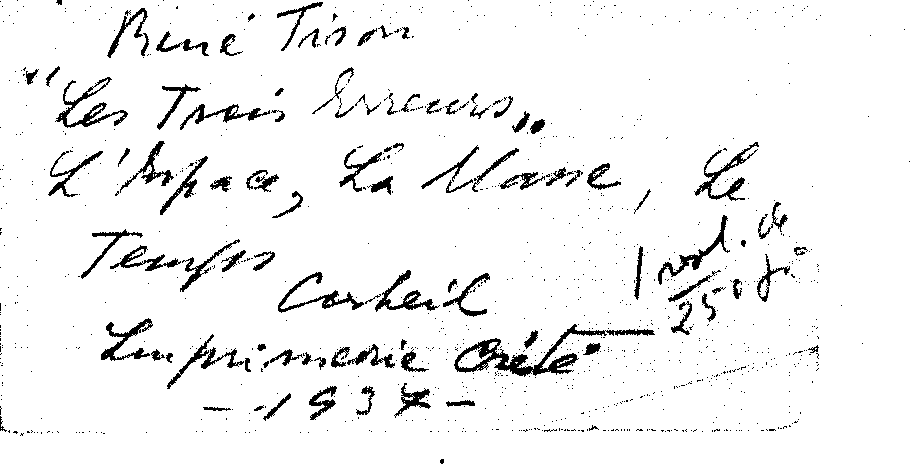 René Tison
"Les Trois Erreurs"
L'Espace, La Masse, Le
Temps
1 vol. de
250
Corbeil
Imprimerie Crété
- 1937 -